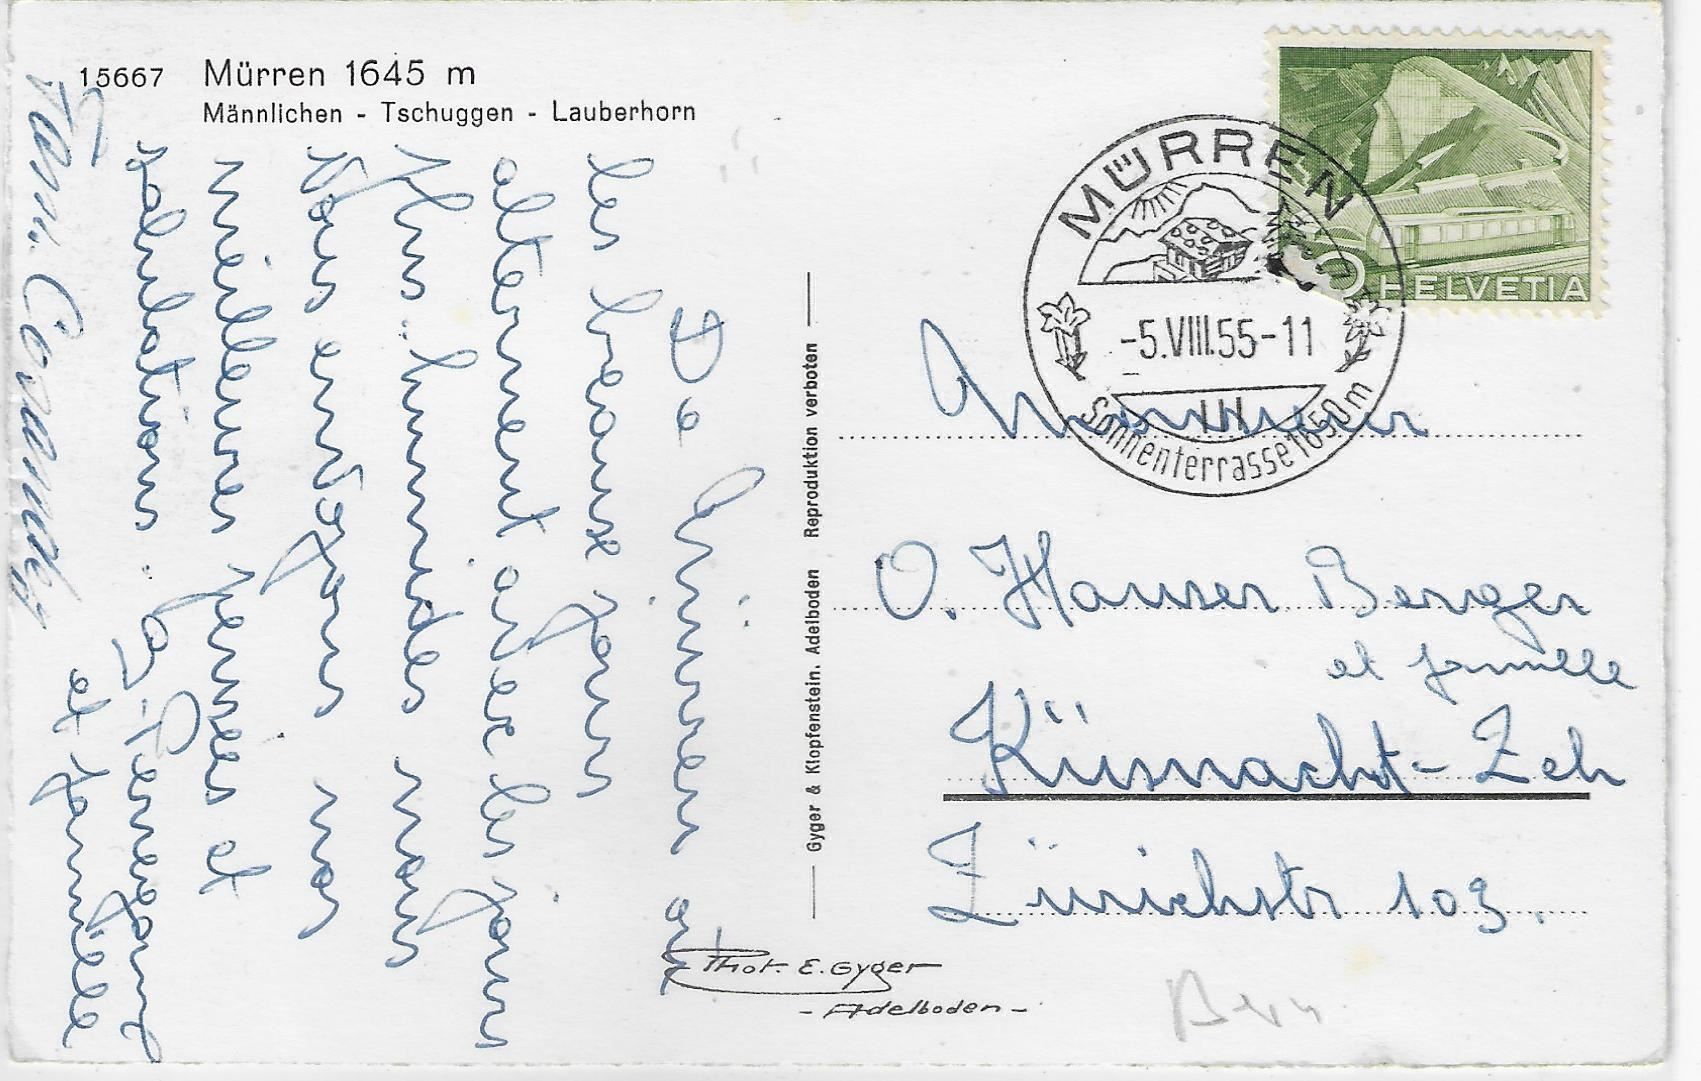 15667 Mürren 1645 m
Männlichen - Tschuggen - Lauberhorn
De Mürren où
les beaux jours
alternent avec les jours
plus humides nous
vous envoyons nos
meilleures pensées et
salutations.
et famille
Fam.
Gyger & Klopfenstein. Adelboden Reproduktion verboten
Phot. E. Gyger
- Adelboden -
HELVETIA
MÜRREN
-5.VIII.55-11
Sonnenterrasse 1650 m
Monsieur
O. Hauser Berger
et famille
Küsnacht-Zch
Zürichstr 103.
Bern